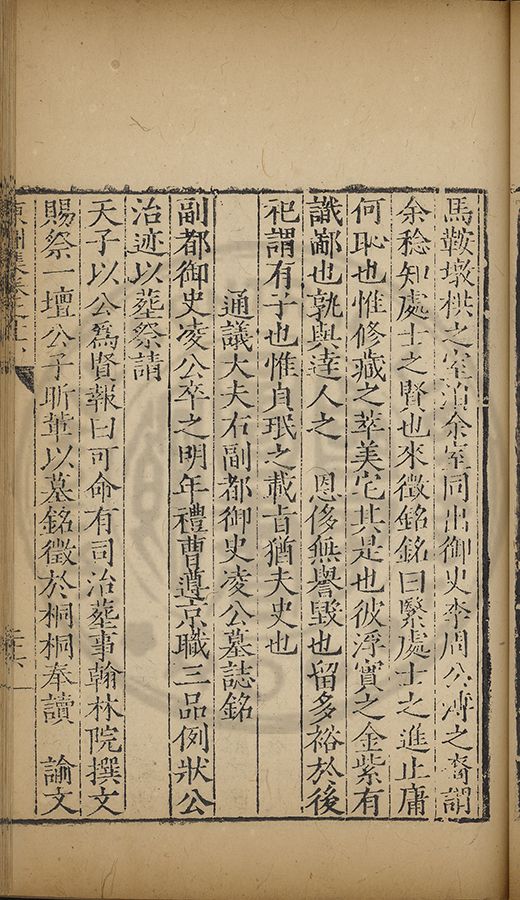 馬鞍墩栱之室洎余室同出御史李周公溥之裔謂
余稔知處士之賢也來徵銘銘曰繄處士之進止庸
何恥也惟修藏之萃美宅其是也彼浮實之金紫有
識鄙也孰與達人之 恩侈無譽毀也留多裕於後
祀謂有子也惟貞珉之載旨猶夫史也
通議大夫右副都御史凌公墓誌銘
副都御史凌公卒之明年禮曹遵京職三品例狀公
治迹以葬祭請
天子以公為賢報曰可命有司治葬事翰林院撰文
賜祭一壇公子昕輩以墓銘徵於桐桐奉讀 諭文
東洲集卷之